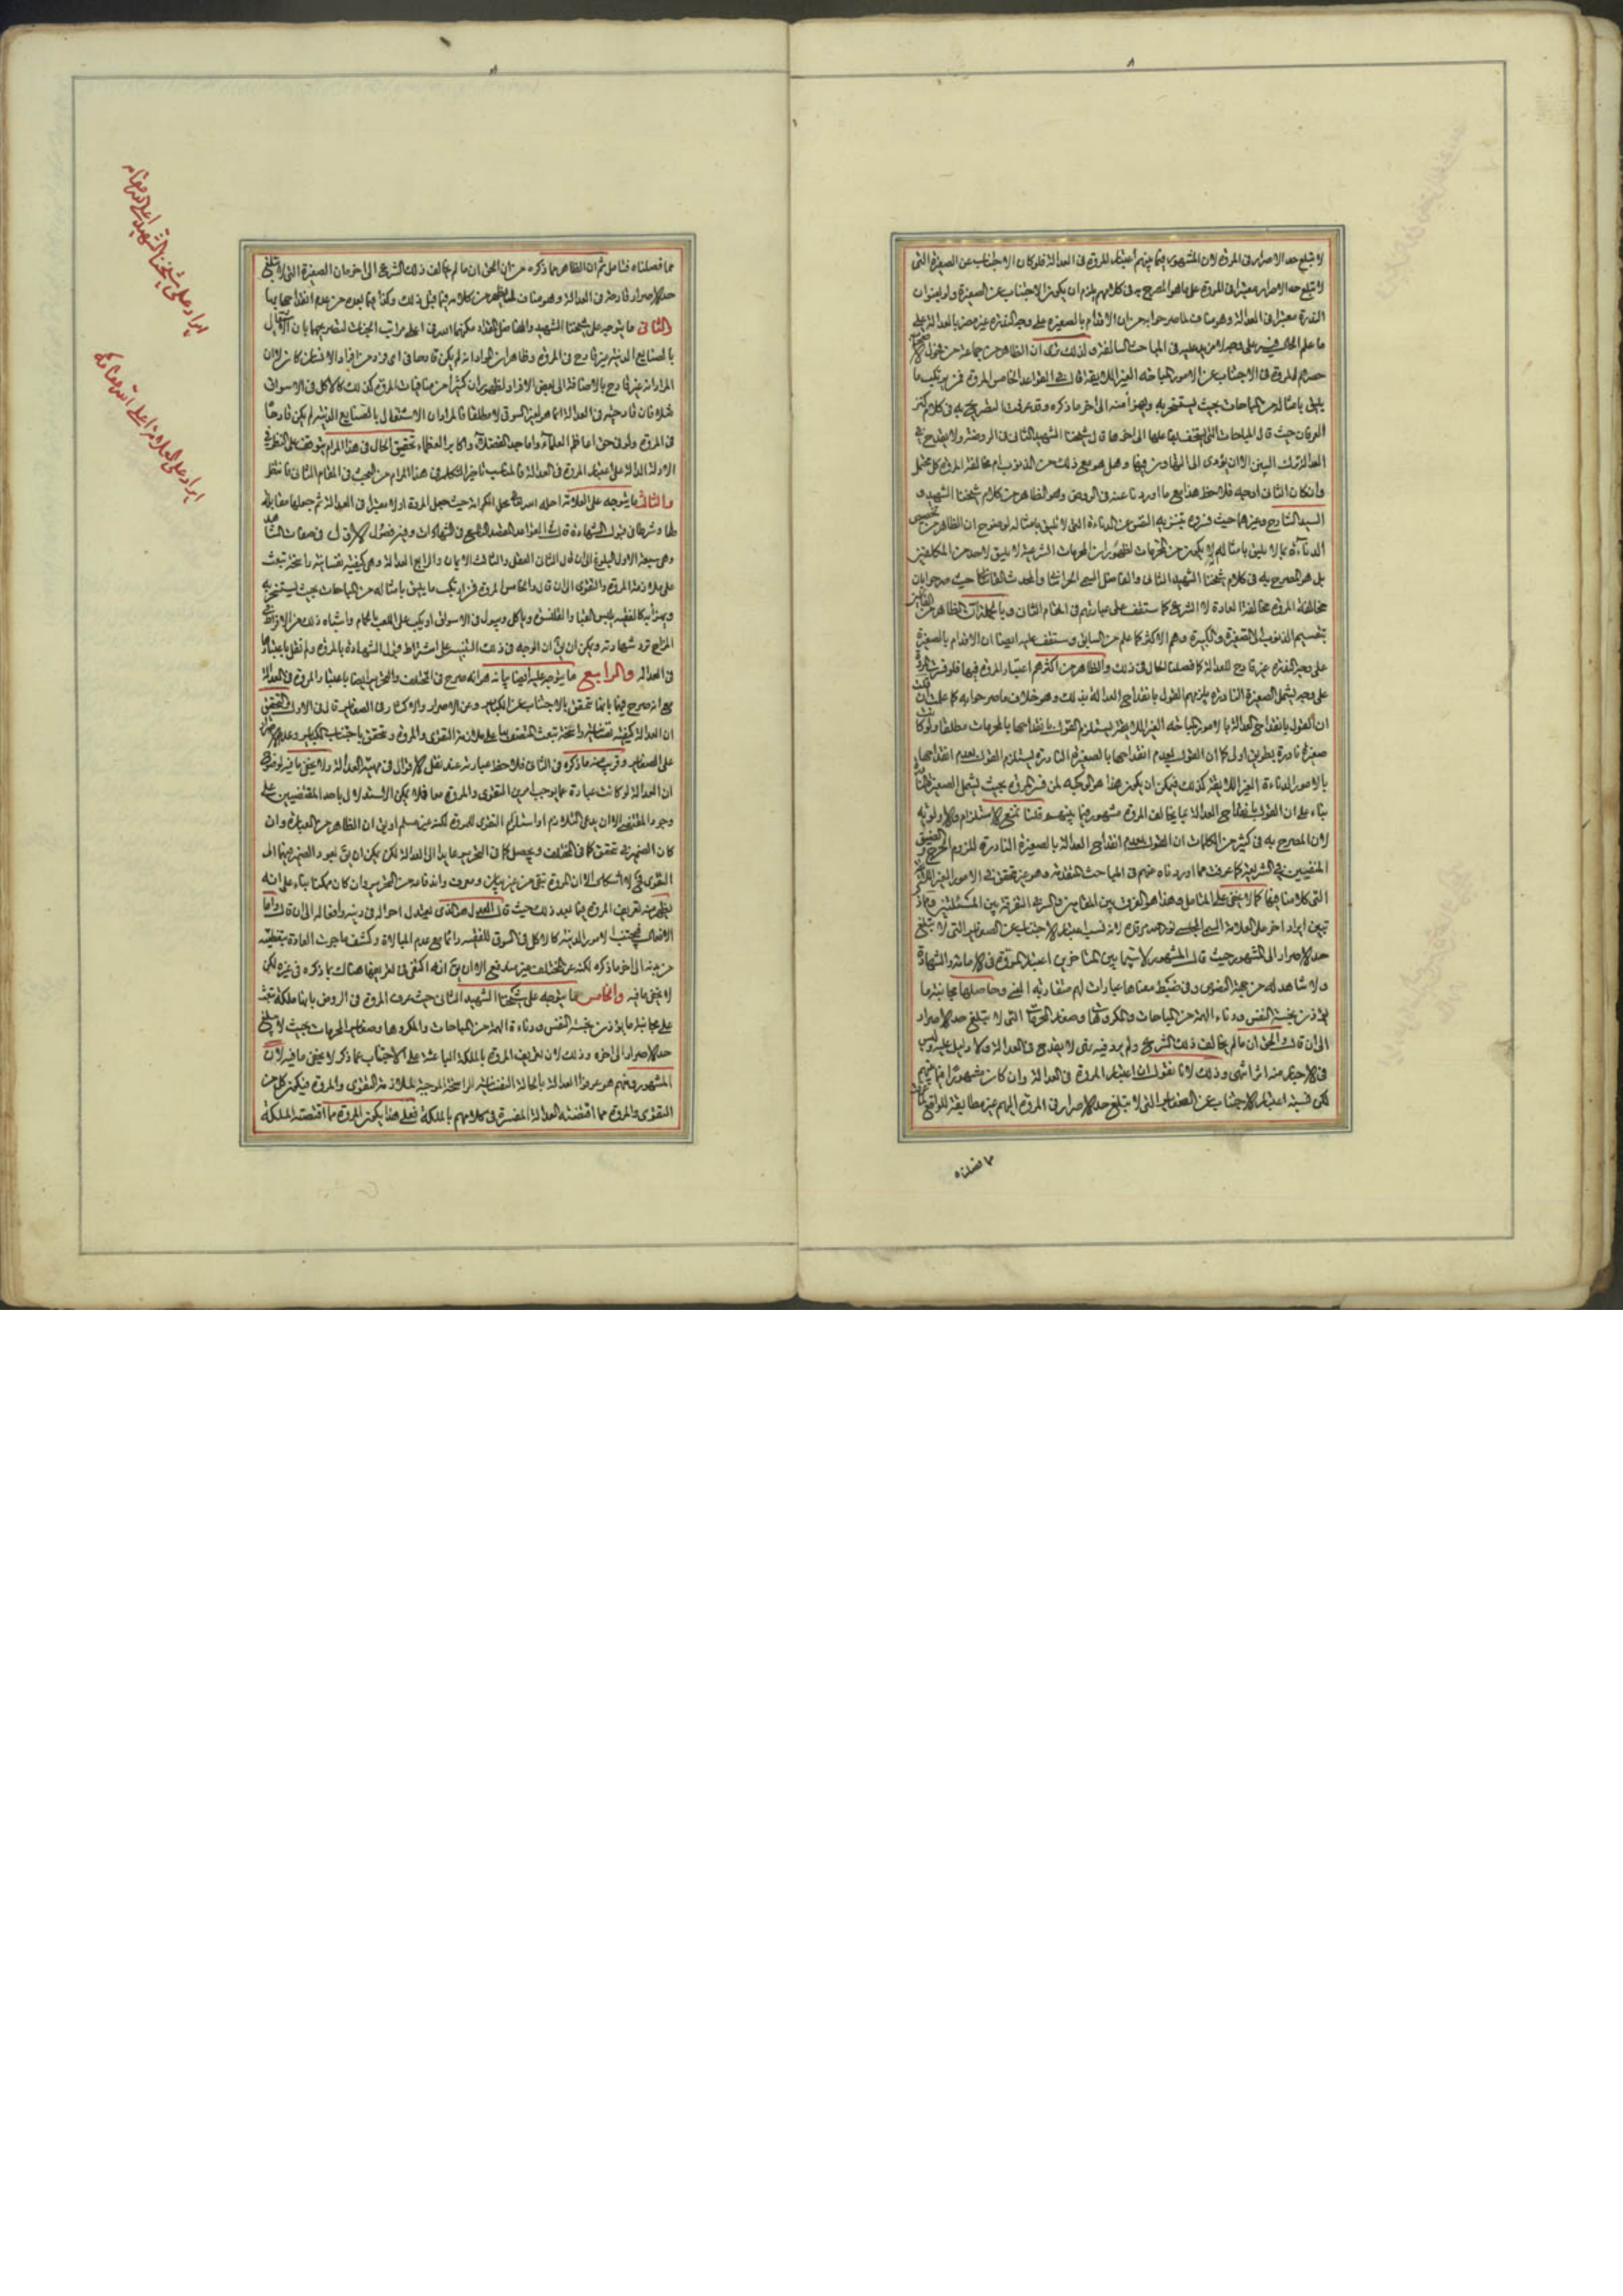 لا تبلغ حد الاصرار فى المروة لان المشهور فيما بينهم اعتبار المروة فى العدالة فلو كان الاجتناب عن الصغيرة التى
لا تبلغ حد الاصرار معتبرا فى المروة على ما هو المصرح به فى كلامهم يلزم ان يكون الاجتناب عن الصغيرة ولو بعنوان
الندرة معتبرا فى العدالة وهو مناف لما صرحوا به من ان الاقدام بالصغيرة على وجه الندرة غير مضر بالعدالة على
ما علم الحال فيه المباحث السالفة ان الظاهر من جماعة من فحول
المروة فى الاجتناب عن الامور المباحة الغير اللايقة قال فى القواعد الخامس المروة فمن يرتكب ما
يليق بامثاله من المباحات بحيث يستسخر به ويهزأ منه الى اخر ما ذكره وقد عرفت التصريح به فى كلام
حيث قال المباحات التى قال شيخنا الشهيد الثانى فى الروضة ولا يقدح فى
العدالة ترك السنن الا ان يؤدى الى التهاون فيها وهل هو مع ذلك من الذنوب ام مخالفة المروة كل محتمل
وان كان الثانى اوجه فلاحظ هذا مع ما اوردنا عنه فى الروض وهو الظاهر من كلام شيخنا الشهيد و
السيد الشارح وغيرهما حيث فسروه بتنزيه النفس عن الدناءة التى لا تليق بامثاله لوضوح ان الظاهر من
الدناءة بما لا يليق بامثالهم لظهور ان المحرمات الشرعية لا يليق لاحد من المكلفين
بل هو المصرح به فى كلام شيخنا الشهيد الثانى والفاضل السمى الخراسانى والمحدث القاسانى حيث صرحوا بان
مخالفة المروة مخالفة العادة لا الشرع كما ستقف على عبارتهم فى المقام الثانى وبالجملة ان الظاهر من
بتقسيم الذنوب الى الصغيرة والكبيرة وهم الاكثر كما علم من السابق وستقف عليه ايضا ان الاقدام بالصغيرة
على وجه الندرة غير قادح للعدالة كما فصلنا الحال فى ذلك والظاهر من اكثرهم اعتبار المروة فيها فلو فسرت
على وجه يشمل الصغيرة النادرة يلزمهم القول بانقداح العدالة بذلك وهو خلاف ما صرحوا به كما علمت
ان القول بانقداح العدالة بالامور المباحة الغير اللايقة يستلزم القول بانقداحها بالمحرمات مطلقا ولو كانت
صغيرة نادرة بطريق اولى كما ان القول بعدم انقداحها بالصغيرة النادرة يستلزم القول بعدم انقداحها
بالامور الدناءة الغير اللايقة كذلك فيمكن ان يكون هذا هو الوجه لمن فسر المروة بحيث تشمل الصغيرة
بناء على ان القول بانقداح العدالة بما يخالف المروة مشهور فيما بينهم قلنا نمنع الاستلزام والاولوية
لان المصرح به فى كثير من الكلمات ان القول بعدم انقداح العدالة بالصغيرة النادرة للزوم الحرج و الضيق
المنفيين فى الشريعة كما عرفت مما اوردناه عنهم فى المباحث المتقدمة وهو غير متحقق فى الامور الغير اللايقة
التى كلامنا فيها كما لا يخفى على المتامل وهذا هو الفرق بين المقامين والسر فى التفرقة بين المسئلتين
تبين ايراد اخر على العلامة السمى المجلسى لانه نسب اعتبار الاجتناب عن الصغاير التى لا تبلغ
حد الاصرار الى المشهور حيث قال المشهور لا سيما بين المتاخرين اعتبار المروة فى الامامة والشهادة
ولا شاهد له من جهة النصوص وفى ضبط معناها عبارات لهم متقاربة المعنى وحاصلها مجانبة ما
يؤذن بخسة النفس ودناءة الهمة من المباحات والمكروهات وصغاير المحرمات التى لا تبلغ حد الاصرار
الى ان قال والحق ان ما لم يخالف ذلك الشرع ولم يرد فيه نهى لا يقدح فى العدالة ولا دليل عليه وليس
فى الاخبار منه اثر انتهى وذلك لانا نقول ان اعتبار المروة فى العدالة وان كان مشهورا فيما بينهم
لكن نسبة اعتبار الاجتناب عن الصغاير التى لا تبلغ حد الاصرار فى المروة اليهم غير مطابقة للواقع
مما فصلناه
مما فصلناه فتامل ثم ان الظاهر مما ذكره من ان الحق ان ما لم يخالف ذلك الشرع الى اخره ان الصغيرة التى لا تبلغ
حد الاصرار قادحة فى العدالة وهو مناف لما يظهر من كلامه فيما قبل ذلك وكذا فيما بعده من عدم انقداحها بها
الثانى ما يتوجه على شيخنا الشهيد والفاضل المقداد مكنهما الله فى اعلى مراتب الجنات لتصريحهما بان الاشتغال
بالصنايع الدنيئة غير قادح فى المروة وظاهر ان المراد انه لم يكن قادحا فى اى فرد من افراد الانسان كان لان
المراد انه غير قادح بالاضافة الى بعض الافراد لظهور ان كثيرا من منافيات المروة كذلك كالاكل فى الاسواق
مثلا فان قادحيته فى العدالة انما هو لغير السوقى لا مطلقا فالمراد ان الاشتغال بالصنايع الدنيئة لم يكن قادحا
فى المروة ولو فى حق اعاظم العلماء واماجد الفضلاء واكابر العظماء تحقيق الحال فى هذا المرام يتوقف على النظر فى
الادلة الدالة على اعتبار المروة فى العدالة فالمناسب تاخير التكلم فى هذا المرام من البحث فى المقام الثانى فانتظر
والثالث ما يتوجه على العلامة احله الله تعالى محل الكرامة حيث جعل المروة اولا معتبرا فى العدالة ثم جعلها مقابلة
لها وشرطا فى قبول الشهادة قال فى القواعد المقصد التاسع فى الشهادات وفيه فصول الاول فى صفات الشاهد
وهى سبعة الاول البلوغ الى ان قال الثانى العقل والثالث الايمان والرابع العدالة وهى كيفية نفسانية راسخة تبعث
على ملازمة المروة والتقوى الى ان قال والخامس المروة فمن ارتكب ما يليق بامثاله من المباحات بحيث يستسخر به
ويهزأ به كالفقيه يلبس القبا والقلنسوة وياكل ويبول فى الاسواق او يكب على اللعب بالحمام واشباه ذلك من الافراط فى
المزاح ترد شهادته ويمكن ان يق ان الوجه فى ذلك التنبيه على اشتراط قبول الشهادة بالمروة ولم نقل باعتبارها
فى العدالة والرابع ما يتوجه عليه ايضا بيانه هو انه صرح فى المختلف والتحرير ايضا باعتبار المروة فى العدالة
مع انه صرح فيهما بانها تتحقق بالاجتناب عن الكباير وعن الاصرار والاكثار فى الصغاير قال فى الاول والتحقيق
ان العدالة كيفية نفسانية راسخة تبعث المتصف بها على ملازمة التقوى والمروة وتتحقق باجتناب الكباير وعدم الاصرار
على الصغاير وقريب منه ما ذكره فى الثانى فلاحظ عبارته عند نقل الاقوال فى مهية العدالة ولا يخفى ما فيه لوضوح
ان العدالة لو كانت عبارة عما يوجب امرين التقوى والمروة معا فلا يمكن الاستدلال باحد المقتضيين على
وجود المقتضى الا ان يدعى التلازم او استلزام التقوى للمروة لكنه غير مسلم او يق ان الظاهر من العبارة وان
كان الضمير فى تتحقق كما فى المختلف ويحصل كما فى التحرير عايدا الى العدالة لكن يمكن ان يق بعود الضمير فيهما الى
التقوى فح لا اشكال الا ان المروة تبقى من غير بيان ومعرف وانه فاسد من التحرير وان كان ممكنا بناء على انه
يظهر منه تعريف المروة فيما بعد ذلك حيث قال العدل هو الذى يعتدل احواله فى دينه وافعاله الى ان قال واما
الافعال فيجتنب الامور الدنية كالاكل فى السوق للفقيه دائما مع عدم المبالاة وكشف ما جرت العادة بتغطيته
من بدنه الى اخر ما ذكره لكنه عن المختلف غير مندفع الا ان يق انه اكتفى فى تعريفها هناك بما ذكره فى غيره لكن
لا يخفى ما فيه والخامس ما يتوجه على شيخنا الشهيد الثانى حيث عرف المروة فى الروض بانها ملكة تبعث
على مجانبة ما يؤذن بخسة النفس ودناءة الهمة من المباحات والمكروهات وصغاير المحرمات بحيث لا تبلغ
حد الاصرار الى اخره وذلك لان تعريف المروة بالملكة الباعثة على الاجتناب عما ذكر لا يخفى ما فيه لان
المشهور منهم هو عرفوا العدالة بالحالة النفسانية الراسخة الموجبة لملازمة التقوى والمروة فيكون كل من
التقوى والمروة مما اقتضته العدالة المفسرة فى كلامهم بالملكة فعلى هذا يكون المروة مما اقتضته الملكة
ايراد على شيخنا الشهيد اعلى الله مقامه
ايراد على العلامة اعلى الله مقامه